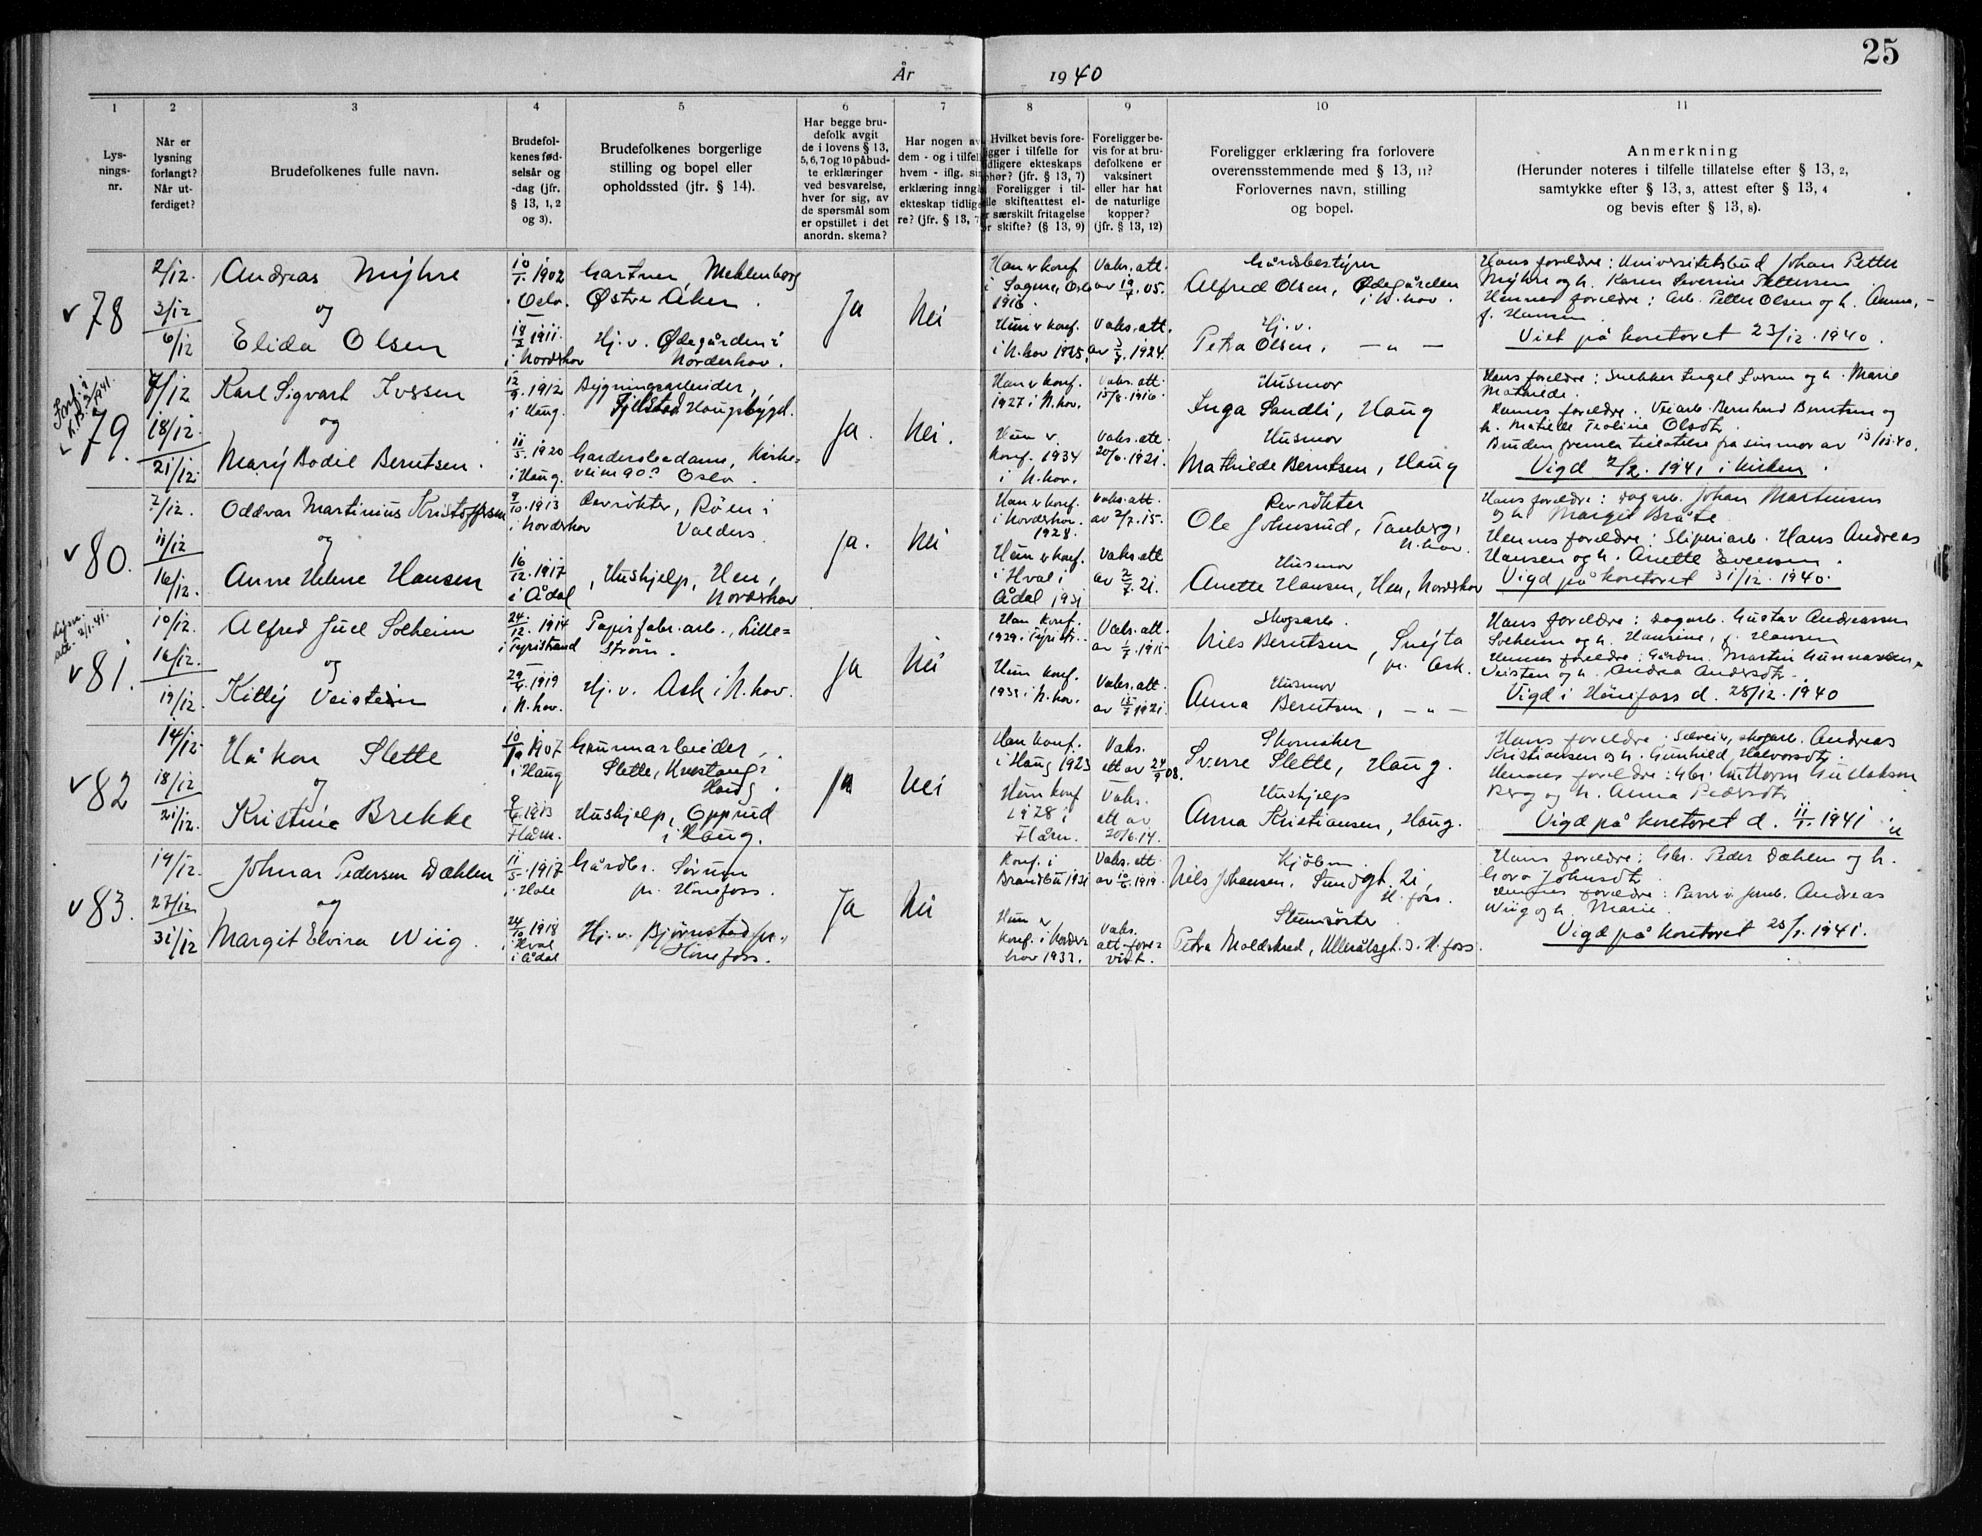 25
År 1940
1 2 3 4 5 6 7 8 9 10 11
Lys-
nings-
nr.
Når er
lysning
forlangt?
Når ut-
ferdiget?
Brudefolkenes fulle navn.
Brudefol-
kenes fød-
selsår og
-dag (jfr.
§ 13, 1, 2
og 3).
Brudefolkenes borgerlige
stilling og bopel eller
opholdssted (jfr. § 14).
Har begge bru-
defolk avgit
de i lovens § 13,
5, 6, 7 og 10 påbud-
te erklæringer
ved besvarelse,
hver for sig, av
de spørsmål som
er opstillet i det
anordn. skema?
Har nogen av
dem - og i tilfel
hvem - iflg. sin
erklæring inngå
ekteskap tidlige
re? (jfr. § 13, 7
Hvilket bevis fore-
ligger i tilfelle for
tidligere ekteskaps
ophør? (jfr. § 13, 7)
Foreligger i til-
lle skifteattest el-
r særskilt fritagelse
or skifte? (§ 13, 9)
Foreligger be-
vis for at bru-
defolkene er
vaksinert
eller har hat
de naturlige
kopper?
(jfr. § 13, 12)
Foreligger erklæring fra forlovere
overensstemmende med § 13, 11?
Forlovernes navn, stilling
og bopel.
Anmerkning
(Herunder noteres i tilfelle tillatelse efter § 13, 2,
samtykke efter § 13, 3, attest efter § 13, 4
og bevis efter § 13, 8).
v 78
2/12.
3/12
6/12
Andreas Myhre
og
Elida Olsen
10/1 1902
i Oslo.
18/2 1911.
i Norderhov
Gartner Meklenborg
Østre Aker.
Hj. v. Ødegården i
Norderhov.
Ja
Nei
Han er konf.
i Sagene, Oslo
1916.
Hun er konf.
i N.hov 1925.
Vaks. att.
av 19/7. 05.
Vaks. att.
av 3/7. 1924.
Gårdsbestyrer
Alfred Olsen, Ødegården
i N.hov.
Hj. v.
Petra Olsen, — „ —
Hans foreldre: Universitetsbud Johan Petter
Myhre og h. Karen Severine Pettersen
Hennes foreldre: Arb. Petter Olsen og h. Anna,
f. Hansen
Viet på kontoret 23/12. 1940.
79.
7/12
18/12.
21/12.
Karl Sigvart Iversen
og
Mary Bodil Berntsen.
12/9. 1912
i Haug.
11/5. 1920
i Haug.
Bygningsarbeider,
Fjelstad Haugsbygd.
Garderobedame, Kirke-
veien 90? Oslo.
Ja.
Nei.
Han er konf.
1927 i N.hov.
Hun er
konf. 1934
i N.hov.
Vaks. att.
15/8. 1916.
Vaks. att.
20/6. 1921.
Husmor
Inga Sandli, Haug
Husmor
Mathilde Berntsen, Haug
Hans foreldre: Snekker Engel Iversen og h. Marie
Mathilde.
Hennes foreldre: Veiarb. Bernhard Berntsen og
h. Matilde Teoline Olsdtr.
Bruden fremla tillatelse fra sin mor av 13/12.40.
Vigd 2/2. 1941 i kirken.
v 80.
7/12.
11/12
16/12.
Oddvar Martinius Kristoffersen
og
Anne Helene Hansen
9/10. 1913
i Norderhov
16/12. 1917
i Ådal
Revrøkter, Røen i
Valdres.
Hushjelp, Hen,
Norderhov
Ja.
Nei
Han er konf.
i Norderhov.
1928.
Hun er konf.
i Hval i
Ådal 1931
Vaks. att.
av 2/7. 15.
Vaks. att
av 2/7. 21.
Revrøkter
Ole Johnsrud, Tanberg,
N.hov.
Husmor
Anette Hansen, Hen, Norderhov
Hans foreldre: Dagarb. Johan Martinsen
og h. Margit Bråte.
Hennes foreldre: Sliperiarb. Hans Andreas
Hansen og h. Anette Evensen.
Vigd på kontoret 31/12. 1940.
2/1.41.
v 81.
10/12.
16/12.
19/12.
Alfred Juel Solheim
og
Kitty Veistein
24/12. 1914
i Tyristrand
29/6. 1919
i N.hov.
Papirfabr.arb., Lille-
strøm.
Hj. v. Ask i N.hov.
Ja
Nei
Han konf.
1929. Tyristr.
Hun konf.
i N.hov.
Vaks. att.
av 1/7. 1915
Vaks. att.
av 15/7 1921.
Skogsarb.
Nils Berntsen, Snejta
pr. Ask.
Husmor
Anna Berntsen, — „ —
Hans foreldre: Dagarb. Gustav Andreassen
Solheim og h. Hansine, f. Hansen
Hennes foreldre: Gårdm. Martin Gunnarsen
Veisten og h. Andrea Andersdtr.
Vigd i Hønefoss d. 28/12. 1940
v 82
14/12.
18/12
21/12.
Håkon Slette
og
Kristine Brekke
10/10 1907
i Haug
9/6 1913
Flåm.
Grunnarbeider,
Slette, Kvestang i
Haug.
Hushjelp, Opprud
i Haug.
Ja
Nei
Han konf.
i Haug 1923
Hun konf
1928 i
Flåm.
Vaks.
att av 24/9 08.
Vaks.
att av
20/6. 14.
Skomaker
Sverre Slette, Haug.
Hushjelp
Anna Kristiansen, Haug.
Hans foreldre: Selveier, skogarb. Andreas
Kristiansen og h. Gunhild Halvorsdtr.
Hennes foreldre: Gbr. Guttorm Gullaksen
Berg og h. Anna Pedersdtr
Vigd på kontoret d. 11/1. 1941
v 83.
19/12.
27/12
31/12
Johnar Pedersen Dæhlen
og
Margit Elvira Wiig.
11/5. 1917
i Hole
24/10. 1918
i Hval
i Ådal
Gårdbr. Sørum
pr. Hønefoss.
Hj. v. Bjørnstad pr.
Hønefoss.
Ja
Nei
Konf. i
Brandbu 1931
Hun er
konf. i Norder-
hov 1933.
Vaks. att
av 10/6. 1919.
Vaks.
att. fore-
vist.
Kjøbm.
Nils Johansen, Sundgt. 21,
H.foss.
Stuesøster
Petra Moldskred, Ullerålsgt. 3. H.foss.
Hans foreldre: Gbr. Peder Dæhlen og h.
Gora Johnsdtr
Hennes foreldre: Andreas
Wiig og h. Marie.
Vigd på kontoret 25/1. 1941.